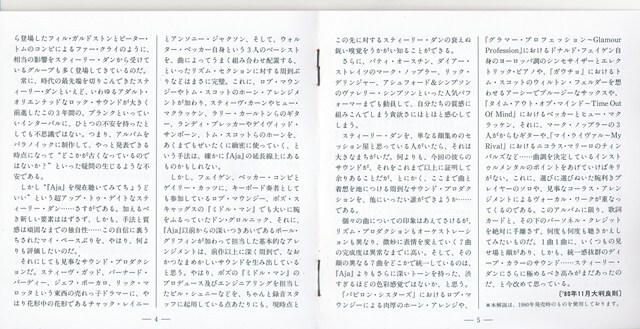 ら登場したフィル・ガルドストンとピーター・
トムのコンビによるファー・クライのように、
相当の影響をスティーリー・ダンから受けて
いるグループも多く登場してきているのだ。
常に、時代の最先端を切りこんできたステ
ィーリー・ダンといえど、いわゆるアダルト・
オリエンテッドなロック・サウンドが大きく
前進したこの3年間の、ブランクといってい
いインターバルに、ひとつの不安を持ったと
しても不思議ではない。つまり、アルバムを
パラノイックに制作して、やっと発表できる
時点になって"どこかが古くなっているので
はないか?"といった疑問の生じるような不
安である。
しかし"『Aja』を現在聴いてみてちょうど
いい"という超アップ・トゥ・デイトなスティ
ーリー・ダン……さすがである。加えるべ
き新しい要素ははずさず、しかも、手法と質
感は頑固なまでの独自性……この自信に裏う
ちされたマイ・ペースぶりを、やはり、何よ
りも評価したいのだ。
それにしても見事なサウンド・プロダクショ
ンだ。スティーヴ・ガッド、バーナード・
パーディー、ジェフ・ポーカロ、リック・マ
ロッタという東西の売れっ子ドラマーに、や
はり花形中の花形であるチャック・レイニー
とアンソニー・ジャクソン、そして、ウォル
ター・ベッカー自身という3人のベーシスト
を、曲によってうまく組み合わせ配置する、
といったリズム・セクションに対する周到ぶ
りなどはまさに完璧。これに、ロブ・マウン
ジーやトム・スコットのホーン・アレンジメ
ントが加わり、スティーヴ・カーンやヒュー・
マクラッケン、ラリー・カールトンらのギタ
ー、ランディ・ブレッカーやデイヴィッド・
サンボーン、トム・スコットらのホーンを、
あくまでもぜいたくに緻密に使っていく、と
いう手法は、確かに『Aja』の延長線上にあ
るものかもしれない。
しかし、フェイゲン、ベッカー・コンビと
ゲイリー・カッツに、キーボード奏者として
も参加しているロブ・マウンジー、ボズ・ス
キャッグスの『ミドル・マン』でも大いに腕
をふるっていたドン・グロルニック、それに、
『Aja』以前からの深いつきあいであるポール・
グリフィンが加わって担当した基本的なアレ
ンジメントは、前作以上に深く周到で、なお
かつなまめかしいサウンドを生み出している
と思う。やはり、ボズの『ミドル・マン』の
プロデュース及びエンジニアリングを担当し
たビル・シュニーなどを、ちゃんと録音スタ
ッフに起用している点あたりにも、現時点と
— 4 —
この先に対するスティーリー・ダンの衰えぬ
鋭い嗅覚をうかがい知ることができる。
さらに、パティ・オースチン、ダイアー・
ストレイツのマーク・ノップラー、リック・
デリンジャー、アシュフォード&シンプソン
のヴァレリー・シンプソンといった人気パフ
ォーマーまでも動員して、自分たちの質感に
組みこんでしまう貪欲さにはほとほと感心して
しまう。
スティーリー・ダンを、単なる顔集めのセ
ッション屋と思っている人がいたら、それは
大きなまちがいだ。何よりも、今回の彼らの
サウンドが、それをこれまで以上に証明して
余りあることだが、とにかく、ここまで曲と
着想を地につける周到なサウンド・プロダク
ションを、他にいったい誰ができようか……
である。
個々の曲についての印象はあえてさけるが、
リズム・プロダクションもオーケストレーシ
ョンも異なり、微妙に表情を変えていく7曲
の完成度は異常なまでに高い。そして、その
顔の異なる7曲をどこかで統一しているのは、
『Aja』よりもさらに深いトーンを持った、渋
すぎるほどの色彩感覚ではないか、と思う。
「バビロン・シスターズ」におけるロブ・マ
ウンジーによる肉厚のホーン・アレンジや、
『グラマー・プロフェッション〜Glamour
Profession』におけるドナルド・フェイゲン自
身のヨーロッパ調のシンセサイザーとエレク
トリック・ピアノや、『ガウチョ』におけるト
ム・スコットのウィルトン・フェルダーを想
わせるアーシーでブルージーなサックスや、
『タイム・アウト・オブ・マインド〜Time Out
Of Mind』におけるベッカーとヒュー・マク
ラッケン、それに、マーク・ノップラーの3
人がからむギターや、『マイ・ライヴァル〜My
Rival』におけるニコラス・マリーロのティン
バルズなど……曲調を決定しているインスト
ゥルメンタルのポイントをあげていけばキリ
がない。これに、選びに選びぬいた腕利きプ
レイヤーのソロや、見事なコーラス・アレ
ンジメントによるヴォーカル・ワークが重なっ
てくるのである。このアルバムに限り、歌詞
カードと、その下のパーソネル・クレジット
を絶対に手離さず、何度も何度も聴きかえし
てみたいものだ。1曲1曲に、いくつもの見
せ場と顔があり、しかも、統一感抜群のディ
ープ・カラーのサウンド……スティーリー・
ダンにさらに極めるべき高みがまだあったの
だ、と今改めて思っている。
〔'80年11月大判良則〕
※本解説は、1980年発売時のものを使用しております。
— 5 —